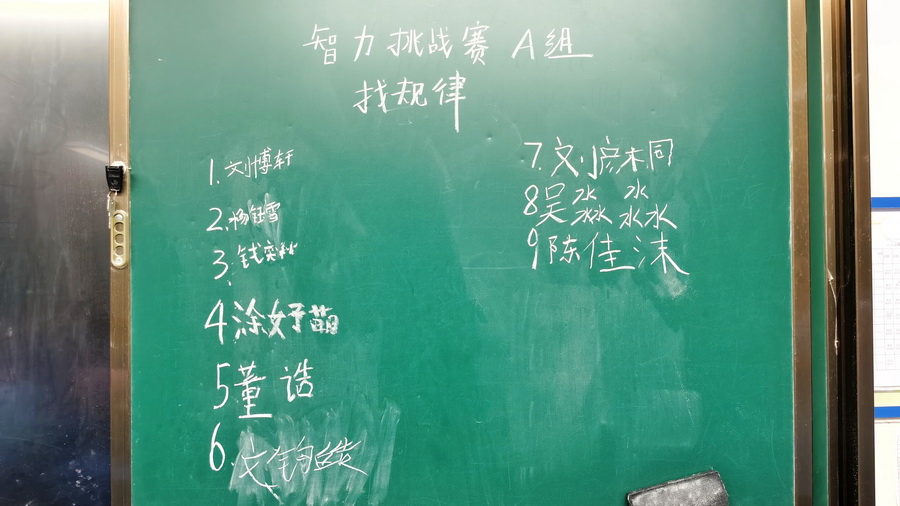 智力挑战赛 A组
找规律
1. 刘博轩
2. 杨钰雪
3. 钱奕秋
4 涂妤萌
5 董诰
7. 刘彦桐
8 吴淼淼
9 陈佳沫